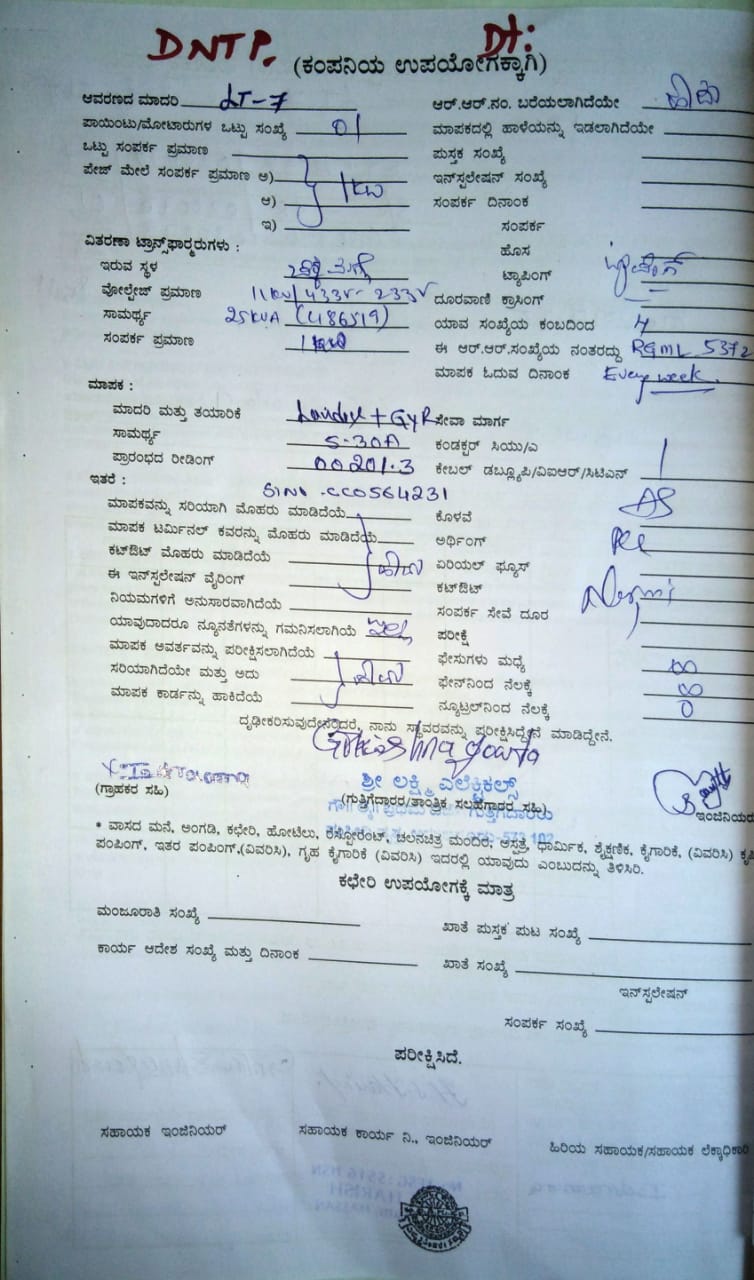 DNTP. Dt:
(ಕಂಪನಿಯ ಉಪಯೋಗಕ್ಕಾಗಿ)
ಆವರಣದ ಮಾದರಿ LT-7
ಆರ್.ಆರ್.ನಂ. ಬರೆಯಲಾಗಿದೆಯೇ ಹೌದು
ಪಾಯಿಂಟು/ಮೋಟಾರುಗಳ ಒಟ್ಟು ಸಂಖ್ಯೆ 01
ಮಾಪಕದಲ್ಲಿ ಹಾಳೆಯನ್ನು ಇಡಲಾಗಿದೆಯೇ
ಒಟ್ಟು ಸಂಪರ್ಕ ಪ್ರಮಾಣ
ಪುಸ್ತಕ ಸಂಖ್ಯೆ
ಪೇಜ್ ಮೇಲೆ ಸಂಪರ್ಕ ಪ್ರಮಾಣ ಅ) 1kw
ಇನ್‌ಸ್ಟಲೇಷನ್ ಸಂಖ್ಯೆ
ಆ)
ಸಂಪರ್ಕ ದಿನಾಂಕ
ಇ)
ಸಂಪರ್ಕ
ವಿತರಣಾ ಟ್ರಾನ್ಸ್‌ಫಾರ್ಮರುಗಳು :
ಹೊಸ
ಇರುವ ಸ್ಥಳ
ಟ್ಯಾಪಿಂಗ್
ವೋಲ್ಟೇಜ್ ಪ್ರಮಾಣ 11kv/433V- 233V
ದೂರವಾಣಿ ಕ್ರಾಸಿಂಗ್
ಸಾಮರ್ಥ್ಯ 25KVA (486519)
ಯಾವ ಸಂಖ್ಯೆಯ ಕಂಬದಿಂದ 4
ಸಂಪರ್ಕ ಪ್ರಮಾಣ
ಈ ಆರ್.ಆರ್.ಸಂಖ್ಯೆಯ ನಂತರದ್ದು RGML 5372
ಮಾಪಕ ಓದುವ ದಿನಾಂಕ Every week.
ಮಾಪಕ :
ಮಾದರಿ ಮತ್ತು ತಯಾರಿಕೆ Landis + GYR
ಸೇವಾ ಮಾರ್ಗ
ಸಾಮರ್ಥ್ಯ 5-30A
ಕಂಡಕ್ಟರ್ ಸಿಯು/ಎ
ಪ್ರಾರಂಭದ ರೀಡಿಂಗ್ 00201.3
ಕೇಬಲ್ ಡಬ್ಲ್ಯೂಪಿ/ವಿಐಆರ್/ಸಿಟಿಎನ್
ಇತರೆ :
Sl No. CC0564231
ಮಾಪಕವನ್ನು ಸರಿಯಾಗಿ ಮೊಹರು ಮಾಡಿದೆಯೆ
ಕೊಳವೆ
ಮಾಪಕ ಟರ್ಮಿನಲ್ ಕವರನ್ನು ಮೊಹರು ಮಾಡಿದೆಯೆ
ಅರ್ಥಿಂಗ್
ಕಟ್‌ಔಟ್ ಮೊಹರು ಮಾಡಿದೆಯೆ ಹೌದು
ಏರಿಯಲ್ ಫ್ಯೂಸ್
ಈ ಇನ್‌ಸ್ಟಲೇಷನ್ ವೈರಿಂಗ್
ಕಟ್‌ಔಟ್
ನಿಯಮಗಳಿಗೆ ಅನುಸಾರವಾಗಿದೆಯೆ
ಸಂಪರ್ಕ ಸೇವೆ ದೂರ
ಯಾವುದಾದರೂ ನ್ಯೂನತೆಗಳನ್ನು ಗಮನಿಸಲಾಗಿಯೆ ಇಲ್ಲ
ಪರೀಕ್ಷೆ
ಮಾಪಕ ಅವರ್ತವನ್ನು ಪರೀಕ್ಷಿಸಲಾಗಿದೆಯೆ
ಫೇಸುಗಳು ಮಧ್ಯೆ ∞
ಸರಿಯಾಗಿದೆಯೇ ಮತ್ತು ಅದು ಹೌದು
ಫೇಸ್‌ನಿಂದ ನೆಲಕ್ಕೆ ∞
ಮಾಪಕ ಕಾರ್ಡನ್ನು ಹಾಕಿದೆಯೆ
ನ್ಯೂಟ್ರಲ್‌ನಿಂದ ನೆಲಕ್ಕೆ 0
ದೃಢೀಕರಿಸುವುದೇನೆಂದರೆ, ನಾನು ಸ್ಥಾವರವನ್ನು ಪರೀಕ್ಷಿಸಿದ್ದೇನೆ ಮಾಡಿದ್ದೇನೆ.
ಶ್ರೀ ಲಕ್ಷ್ಮಿ ಎಲೆಕ್ಟ್ರಿಕಲ್ಸ್
(ಗ್ರಾಹಕರ ಸಹಿ)
(ಗುತ್ತಿಗೆದಾರರ/ತಾಂತ್ರಿಕ ಸಲಹೆಗಾರರ ಸಹಿ)
ಇಂಜಿನಿಯರ
* ವಾಸದ ಮನೆ, ಅಂಗಡಿ, ಕಛೇರಿ, ಹೋಟೆಲು, ರೆಸ್ಟೋರೆಂಟ್, ಚಲನಚಿತ್ರ ಮಂದಿರ, ಆಸ್ಪತ್ರೆ, ಧಾರ್ಮಿಕ, ಶೈಕ್ಷಣಿಕ, ಕೈಗಾರಿಕೆ, (ವಿವರಿಸಿ) ಕೃಷಿ
ಪಂಪಿಂಗ್, ಇತರ ಪಂಪಿಂಗ್,(ವಿವರಿಸಿ), ಗೃಹ ಕೈಗಾರಿಕೆ (ವಿವರಿಸಿ) ಇದರಲ್ಲಿ ಯಾವುದು ಎಂಬುದನ್ನು ತಿಳಿಸಿರಿ.
ಕಛೇರಿ ಉಪಯೋಗಕ್ಕೆ ಮಾತ್ರ
ಮಂಜೂರಾತಿ ಸಂಖ್ಯೆ
ಖಾತೆ ಪುಸ್ತಕ ಪುಟ ಸಂಖ್ಯೆ
ಕಾರ್ಯ ಆದೇಶ ಸಂಖ್ಯೆ ಮತ್ತು ದಿನಾಂಕ
ಖಾತೆ ಸಂಖ್ಯೆ
ಇನ್‌ಸ್ಟಲೇಷನ್
ಸಂಪರ್ಕ ಸಂಖ್ಯೆ
ಪರೀಕ್ಷಿಸಿದೆ.
ಸಹಾಯಕ ಇಂಜಿನಿಯರ್
ಸಹಾಯಕ ಕಾರ್ಯ ನಿ., ಇಂಜಿನಿಯರ್
ಹಿರಿಯ ಸಹಾಯಕ/ಸಹಾಯಕ ಲೆಕ್ಕಾಧಿಕಾರಿ